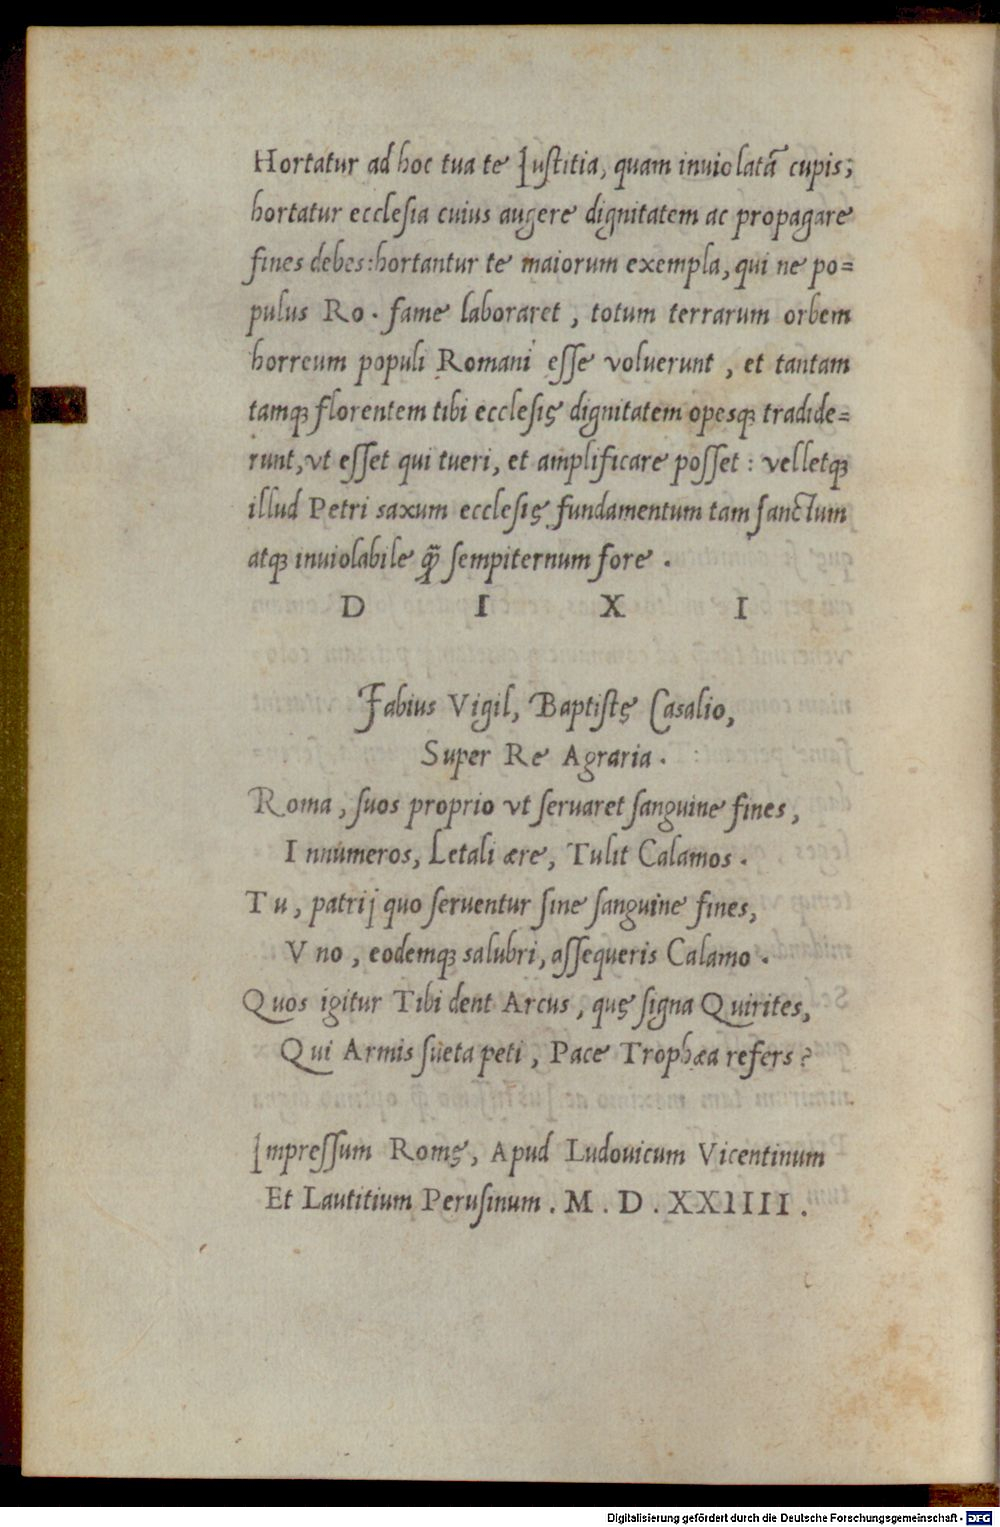 Hortatur ad hoc tua te Iuſtitia, quam inuiolatā cupis;
hortatur eccleſia cuius augere dignitatem ac propagare
fines debes: hortantur te maiorum exempla, qui ne po=
pulus Ro. fame laboraret, totum terrarum orbem
horreum populi Romani eſſe voluerunt, et tantam
tamqꝫ florentem tibi eccleſię dignitatem opesqꝫ tradide=
runt, vt eſſet qui tueri, et amplificare poſſet: velletqꝫ
illud Petri saxum eccleſię fundamentum tam ſanctum
atqꝫ inuiolabile ꝙ̄ ſempiternum fore.
D I X I
Fabius Vigil, Baptiſtę Caſalio,
Super Re Agraria.
Roma, ſuos proprio vt ſeruaret ſanguine fines,
Innumeros, Letali ære, Tulit Calamos.
Tu, patrij quo ſeruentur ſine ſanguine fines,
Vno, eodemqꝫ salubri, aſſequeris Calamo.
Quos igitur Tibi dent Arcus, quę ſigna Quirites,
Qui Armis ſueta peti, Pace Trophæa refers?
Impreſſum Romę, Apud Ludouicum Vicentinum
Et Lautitium Peruſinum. M. D. XXIIII.
Digitalisierung gefördert durch die Deutsche Forschungsgemeinschaft - DFG